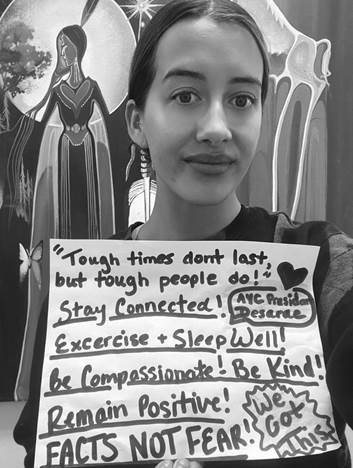 "Tough times dont last,
but tough people do!"
Stay Connected!
AYC President
Deserae
Excercise + Sleep Well!
Be Compassionate! Be Kind!
Remain Positive!
We
Got
This
FACTS NOT FEAR!